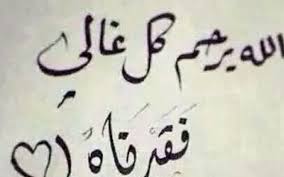 الله يرحم كل غالي
فَقَدْنَاهُ